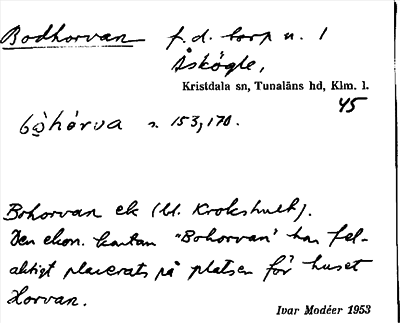 Bodhorvan f.d. torp u. 1
Åskögle,
Kristdala sn, Tunaläns hd, Klm. l.
45
bòhórva s. 153, 170.
Bohorvan ek (bl. Krokshult).
Den ekon. kartan "Bohorvan" har fel-
aktigt placerats på platsen för huset
Horvan.
Ivar Modéer 1953